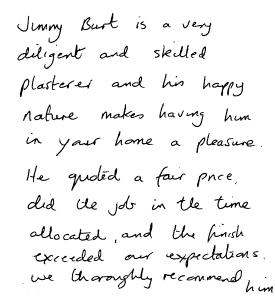 Jimmy Burt is a very
diligent and skilled
plasterer and his happy
nature makes having him
in your home a pleasure.
He quoted a fair price,
did the job in the time
allocated, and the finish
exceeded our expectations.
we thoroughly recommend him